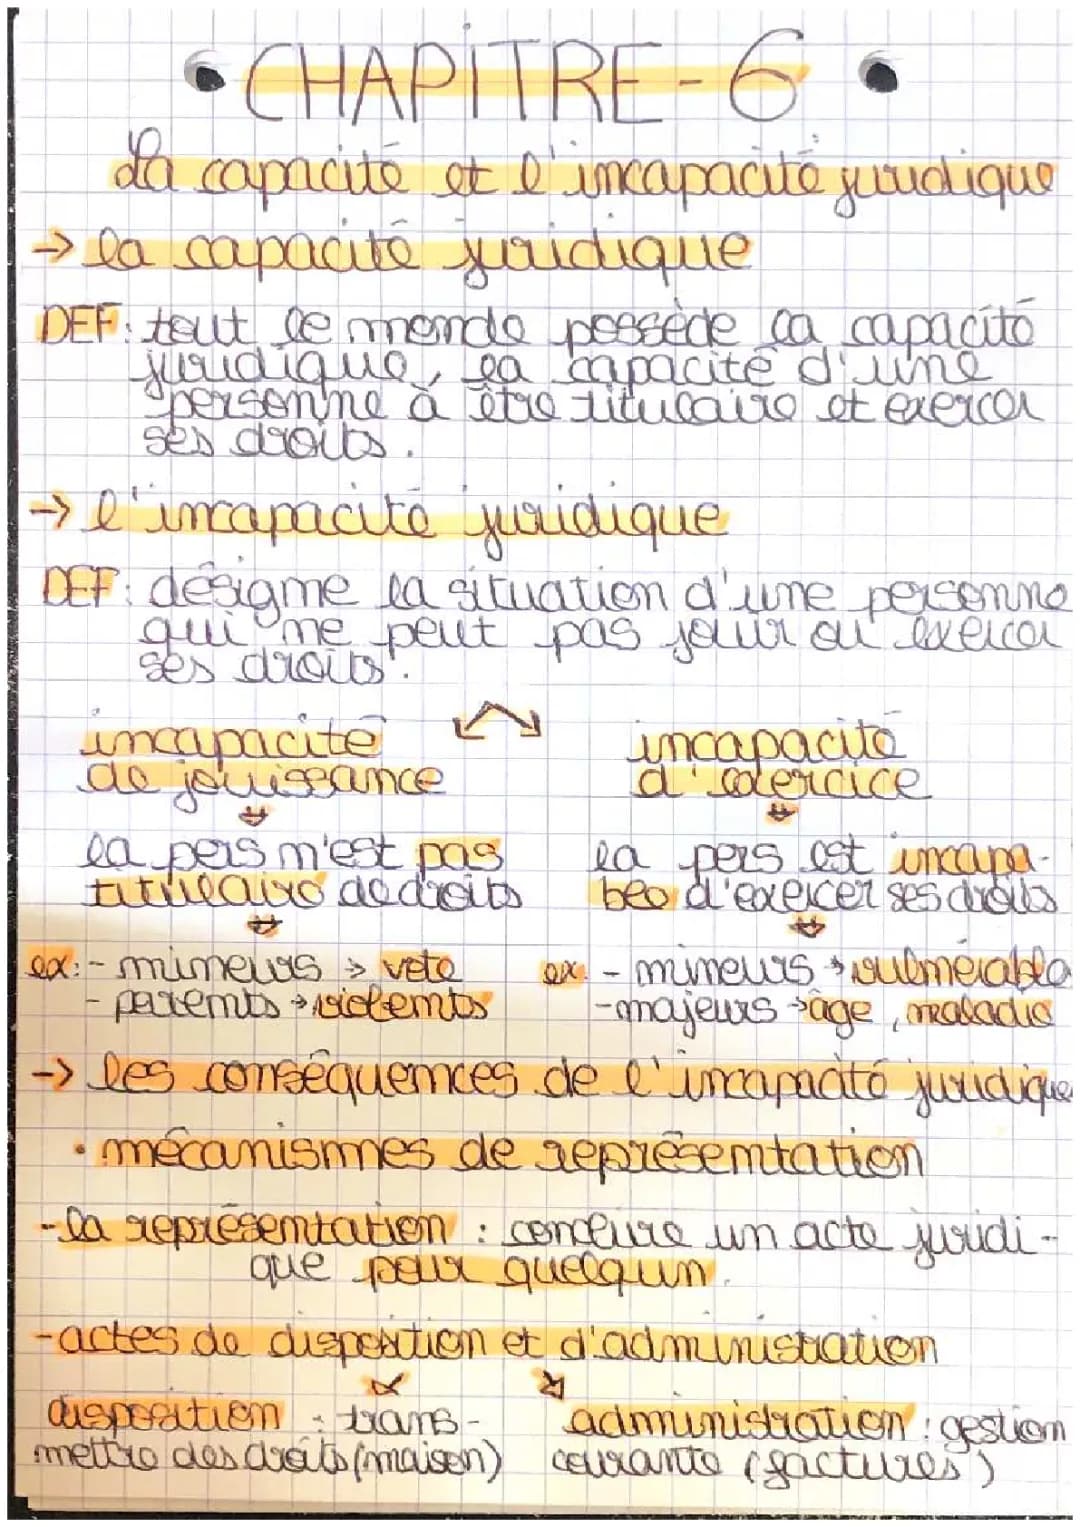 • CHAPITRE-6 •
La capacité et l'incapacité juridique
→ la capacité juridique
DEF: tout le monde possède la capacité
juridique, la capacité d'une
personne à être titulaire et exercer
ses droits.
→ l'incapacité juridique
DEF: désigne la situation d'une personne
qui ne peut pas jouir ou exercer
ses droits.
incapacité
de jouissance
incapacité
d'exercice
la pers n'est pas
titulaire de droits
la pers est incapa-
ble d'exercer ses droits
ex: - mineurs → vote
- parents → violents
ex: - mineurs → vulnérable
- majeurs → âge, maladie
→ les conséquences de l'incapacité juridique
• mécanismes de représentation
- la représentation : conclure un acte juridi-
que pour quelqun.
- actes de disposition et d'administration
disposition : trans-
mettre des droits (maison)
administration : gestion
courante (factures)